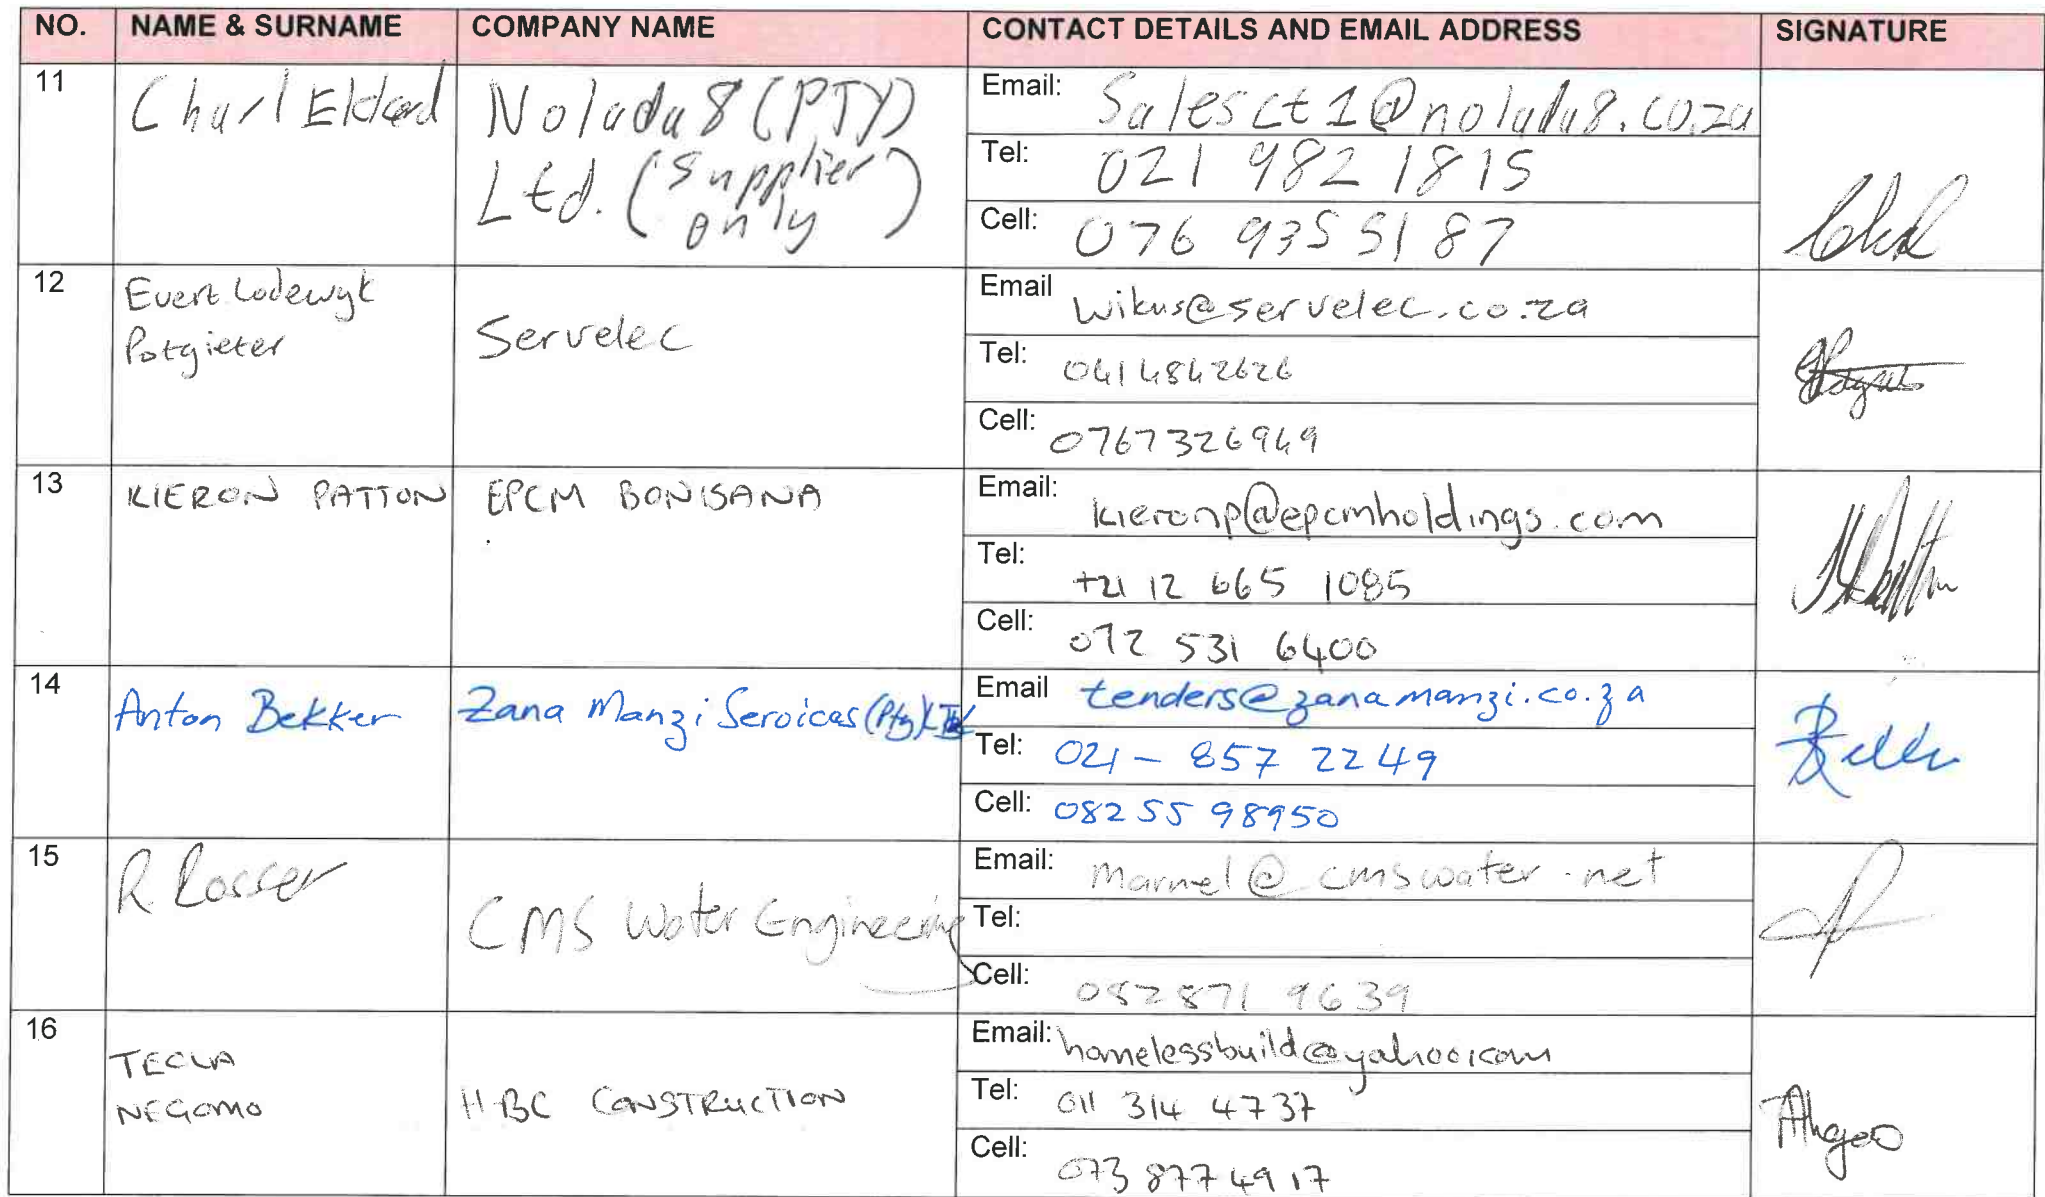 NO. NAME & SURNAME COMPANY NAME CONTACT DETAILS AND EMAIL ADDRESS SIGNATURE
11
Charl
Nolada 8 (PTY)
Ltd. (supplier
only)
Email: Salesct1@nolada8.co.za
Tel: 021 982 1815
Cell: 076 935 5187
12
Evert Lodewyk
Potgieter
Servelec
Email wikus@servelec.co.za
Tel: 0414842626
Cell: 0767326949
13
KIERON PATTON
EPCM BONISANA
Email: kieronp@epcmholdings.com
Tel: +21 12 665 1085
Cell: 072 531 6400
14
Anton Bekker
Zana Manzi Services (Pty) Ltd
Email tenders@zanamanzi.co.za
Tel: 021 - 857 2249
Cell: 082 55 98950
15
R. Rosser
CMS Water Engineering
Email: marnel@cmswater.net
Tel:
Cell: 082 871 9639
16
TECLA
NEGOMO
HBC CONSTRUCTION
Email: homelessbuild@yahoo.com
Tel: 011 314 4737
Cell: 073 877 4917